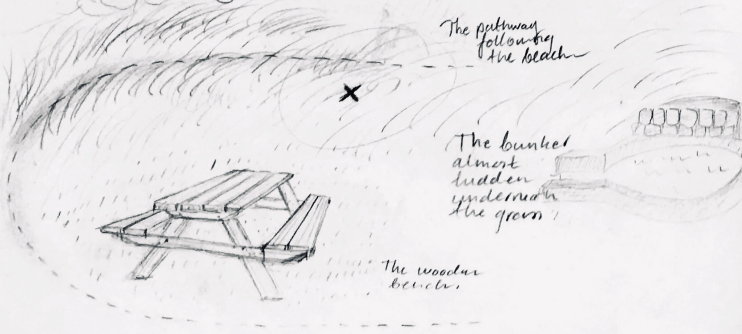 The pathway
following
the beach
The bunker
almost
hidden
underneath
the grass
The wooden
bench.